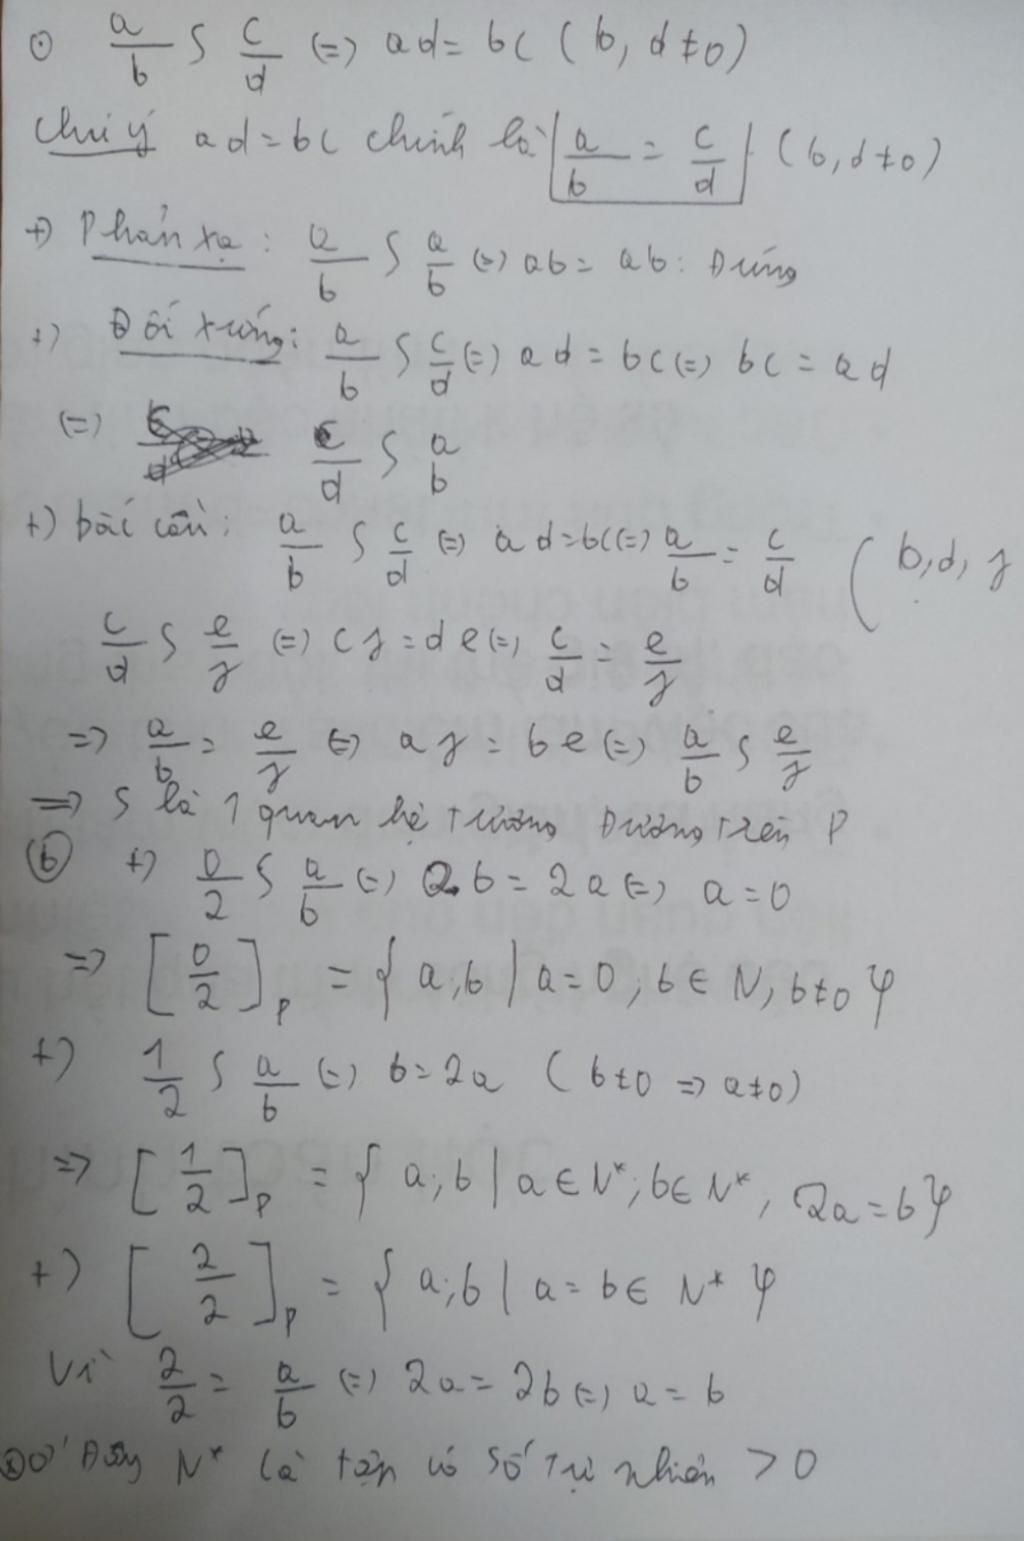 ⊙ a/b S c/d (=) ad = bc (b, d ≠ 0)
Chú ý ad = bc chính là a/b = c/d (b, d ≠ 0)
+) Phản xạ: a/b S a/b (=) ab = ab: Đúng
+) Đối xứng: a/b S c/d (=) ad = bc (=) bc = ad
(=) c/d S a/b
+) bắc cầu: a/b S c/d (=) ad = bc (=) a/b = c/d (b, d, f
c/d S e/f (=) cf = de (=) c/d = e/f
=> a/b = e/f (=) af = be (=) a/b S e/f
=> S là 1 quan hệ tương đương trên P
ⓑ +) 0/2 S a/b (=) 0.b = 2a (=) a = 0
=> [0/2]P = { a;b | a = 0; b ∈ N, b ≠ 0 }
+) 1/2 S a/b (=) b = 2a (b ≠ 0 => a ≠ 0)
=> [1/2]P = { a;b | a ∈ N*; b ∈ N*, 2a = b }
+) [2/2]P = { a;b | a = b ∈ N* }
Vì 2/2 = a/b (=) 2a = 2b (=) a = b
Ở đây N* là tập có số tự nhiên > 0